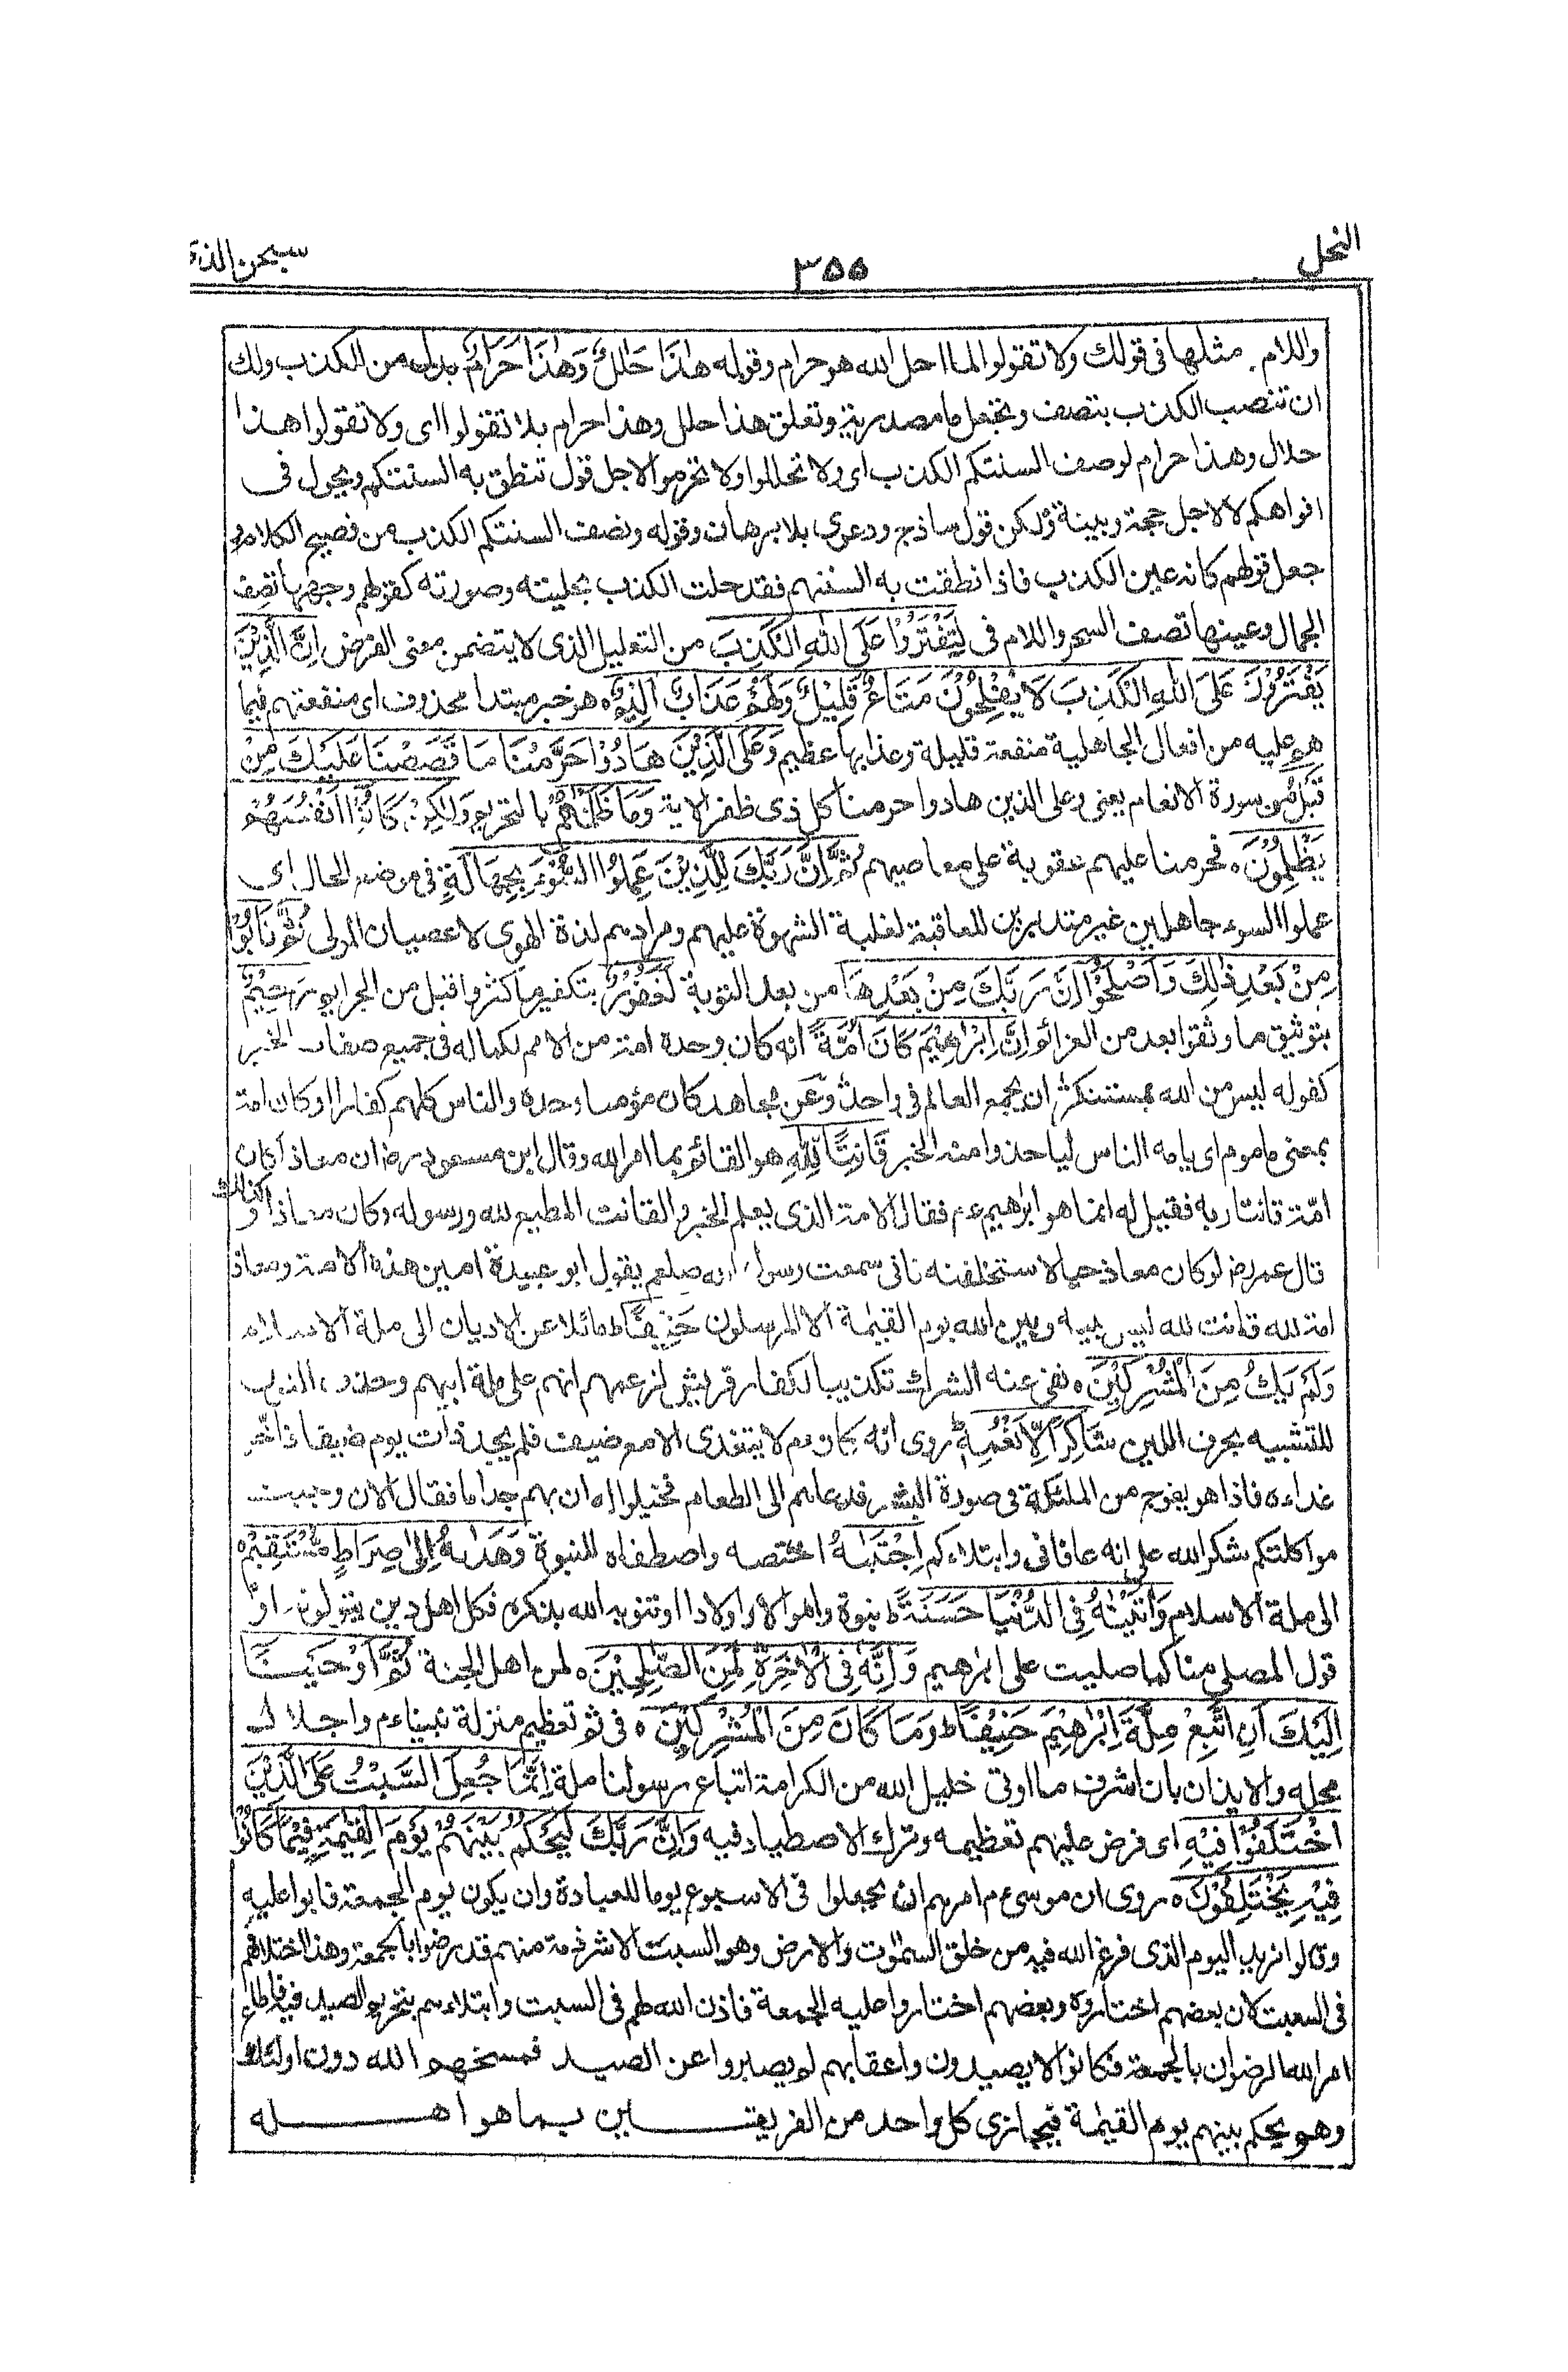 النحل
٣٥٥
سبحن الذى
واللام مثلها فى قولك ولا تقولوا لما احل الله هو حرام وقوله هٰذَا حَلٰلٌ وَهٰذَا حَرَامٌ بدل من الكذب ولك
ان تنصب الكذب بتصف وتجعل ما مصدرية وتعلق هذا حلل وهذا حرام بلا تقولوا اى ولا تقولوا هذا
حلال وهذا حرام لوصف السنتكم الكذب اى ولا تحللوا ولا تحرموا لاجل قول تنطق به السنتكم ويجول فى
افواهكم لا لاجل حجة وبينة ولكن قول ساذج ودعوى بلا برهان وقوله وتصف السنتكم الكذب من فصيح الكلام و
جعل قولهم كانه عين الكذب فاذا نطقت به السنتهم فقد حلت الكذب بحليته وصورته كقولهم وجهها تصف
الجمال وعينها تصف السحر واللام فى لِتَفْتَرُوْا عَلَى اللهِ الْكَذِبَ من التعليل الذى لا يتضمن معنى الغرض اِنَّ الَّذِيْنَ
يَفْتَرُوْنَ عَلَى اللهِ الْكَذِبَ لَا يُفْلِحُوْنَ مَتَاعٌ قَلِيْلٌ وَلَهُمْ عَذَابٌ اَلِيْمٌ ه هو خبر مبتدا محذوف اى منفعتهم فيما
هو عليه من افعال الجاهلية منفعة قليلة وعذابها عظيم وَعَلَى الَّذِيْنَ هَادُوْا حَرَّمْنَا مَا قَصَصْنَا عَلَيْكَ مِنْ
قَبْلُ فى سورة الانعام يعنى وعلى الذين هادوا حرمنا كل ذى ظفر الاية وَمَا ظَلَمْنٰهُمْ بالتحريم وَلٰكِنْ كَانُوْا اَنْفُسَهُمْ
يَظْلِمُوْنَ ه فحرمنا عليهم عقوبة على معاصيهم ثُمَّ اِنَّ رَبَّكَ لِلَّذِيْنَ عَمِلُوا السُّوْءَ بِجَهَالَةٍ فى موضع الحال اى
عملوا السوء جاهلين غير متدبرين للعاقبة لغلبة الشهوة عليهم ومرادهم لذة الهوى لا عصيان المولى ثُمَّ تَابُوْا
مِنْ بَعْدِ ذٰلِكَ وَاَصْلَحُوْا اِنَّ رَبَّكَ مِنْ بَعْدِهَا من بعد التوبة لَغَفُوْرٌ بتكفير ما كثر وا قبل من الجرايم رَحِيْمٌ
بتوثيق ما وثقوا بعد من العزائم اِنَّ اِبْرٰهِيْمَ كَانَ اُمَّةً انه كان وحدة امة من الامم لكماله فى جميع صفات الخير
كقوله ليس من الله بمستنكر ان يجمع العالم فى واحد وعن مجاهد كان مؤمنا وحده والناس كلهم كفارا او كان امة
بمعنى ماموم اى يامه الناس لياخذوا منه الخير قَانِتًا لِّلهِ هو القائم بما امر الله وقال ابن مسعود رض ان معاذا كان
امّة قانتا ربه فقيل له انما هو ابرٰهيم ء م فقال الامة الذى يعلم الخير والقانت المطيع لله ورسوله وكان معاذا و كذلك
قال عمر رض لو كان معاذ حيا لاستخلفته فانى سمعت رسول الله صلعم يقول ابو عبيدة امين هذه الامة ومعاذ
امة لله قانت لله ليس بينه وبين الله يوم القيٰمة الا المرسلون حَنِيْفًا ط مائلا عن الاديان الى ملة الاسلام
وَلَمْ يَكُ مِنَ الْمُشْرِكِيْنَ ه نفى عنه الشرك تكذيبا لكفار قريش لزعمهم انهم على ملة ابيهم وحذف النون
للتشبيه بحرف اللين شَاكِرًا لِّاَنْعُمِهٖ ط روى انه كان ء م لا يتغدى الا مع ضيف فلم يجد ذات يوم ضيفا فاخّر
غداءه فاذا هو بفوج من الملٰئكة فى صورة البشر فدعاهم الى الطعام فخيلوا له ان بهم جذاما فقال الان وجبت
مواكلتكم شكر الله على انه عافانى وابتلاءكم اِجْتَبٰهُ اختصه واصطفاه للنبوة وَهَدٰهُ اِلٰى صِرَاطٍ مُّسْتَقِيْمٍ ه
الى ملة الاسلام وَاٰتَيْنٰهُ فِى الدُّنْيَا حَسَنَةً ط نبوة واموالا واولادا او تنويه الله بذكره فكل اهل دين يتولونه او
قول المصلى منا كما صليت على ابرٰهيم وَاِنَّهٗ فِى الْاٰخِرَةِ لَمِنَ الصّٰلِحِيْنَ ه لمن اهل الجنة ثُمَّ اَوْحَيْنَا
اِلَيْكَ اَنِ اتَّبِعْ مِلَّةَ اِبْرٰهِيْمَ حَنِيْفًا ط وَمَا كَانَ مِنَ الْمُشْرِكِيْنَ ه فى ثم تعظيم منزلة نبينا ء م واجلال
محله والايذان بان اشرف ما اوتى خليل الله من الكرامة اتباع رسولنا ملة اِنَّمَا جُعِلَ السَّبْتُ عَلَى الَّذِيْنَ
اخْتَلَفُوْا فِيْهِ اى فرض عليهم تعظيمه وترك الاصطياد فيه وَاِنَّ رَبَّكَ لَيَحْكُمُ بَيْنَهُمْ يَوْمَ الْقِيٰمَةِ فِيْمَا كَانُوْا
فِيْهِ يَخْتَلِفُوْنَ ه روى ان موسى ع م امرهم ان يجعلوا فى الاسبوع يوما للعبادة وان يكون يوم الجمعة فابوا عليه
وقالوا نريد اليوم الذى فرغ الله فيه من خلق السمٰوٰت والارض وهو السبت الا شرذمة منهم قد رضوا بالجمعة وهذا اختلافهم
فى السبت لان بعضهم اختاروه وبعضهم اختاروا عليه الجمعة فاذن الله لهم فى السبت وابتلاءهم بتحريم الصيد فيه فاطاع
امر الله الرضوان بالجمعة فكانوا لا يصيدون واعقابهم لم يصبروا عن الصيد فمسخهم الله دون اولئك
وهو يحكم بينهم يوم القيٰمة فيجازى كل واحد من الفريقين بما هو اهله